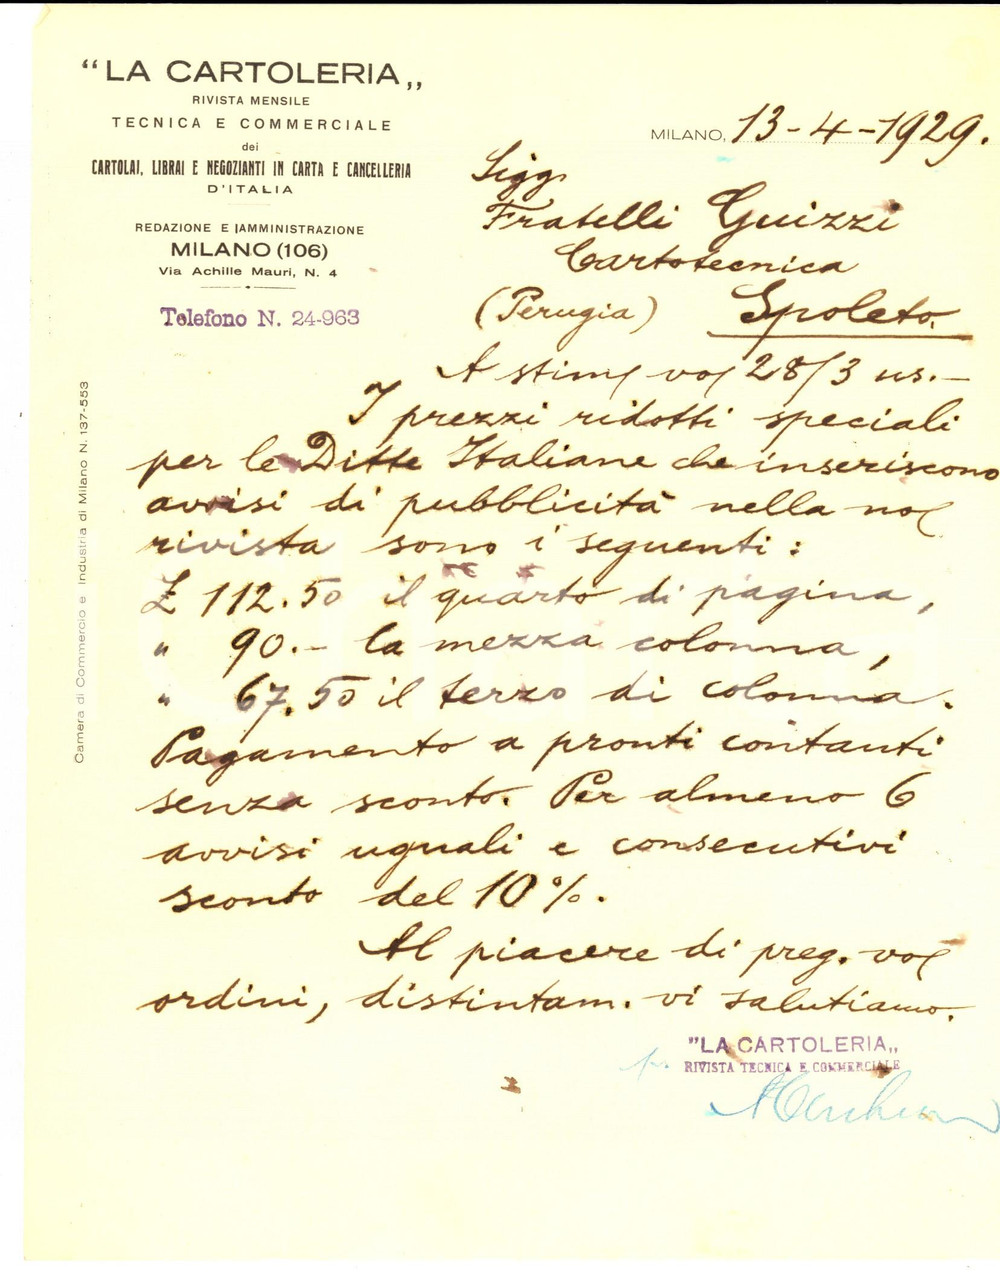 “LA CARTOLERIA„
RIVISTA MENSILE
TECNICA E COMMERCIALE
dei
CARTOLAI, LIBRAI E NEGOZIANTI IN CARTA E CANCELLERIA
D'ITALIA
REDAZIONE E AMMINISTRAZIONE
MILANO (106)
Via Achille Mauri, N. 4
Telefono N. 24-963
Camera di Commercio e Industria di Milano N. 137-553
MILANO, 13-4-1929.
Sigg.
Fratelli Guizzi
Cartotecnica
(Perugia) Spoleto.
A stim/ vo/ 28/3 us.-
I prezzi ridotti speciali
per le Ditte Italiane che inseriscono
avvisi di pubblicità nella no/
rivista sono i seguenti:
£ 112.50 il quarto di pagina,
" 90.- la mezza colonna,
" 67.50 il terzo di colonna.
Pagamento a pronti contanti
senza sconto. Per almeno 6
avvisi uguali e consecutivi
sconto del 10%.
Al piacere di preg. vo/
ordini, distintam. vi salutiamo.
p. "LA CARTOLERIA„
RIVISTA TECNICA E COMMERCIALE